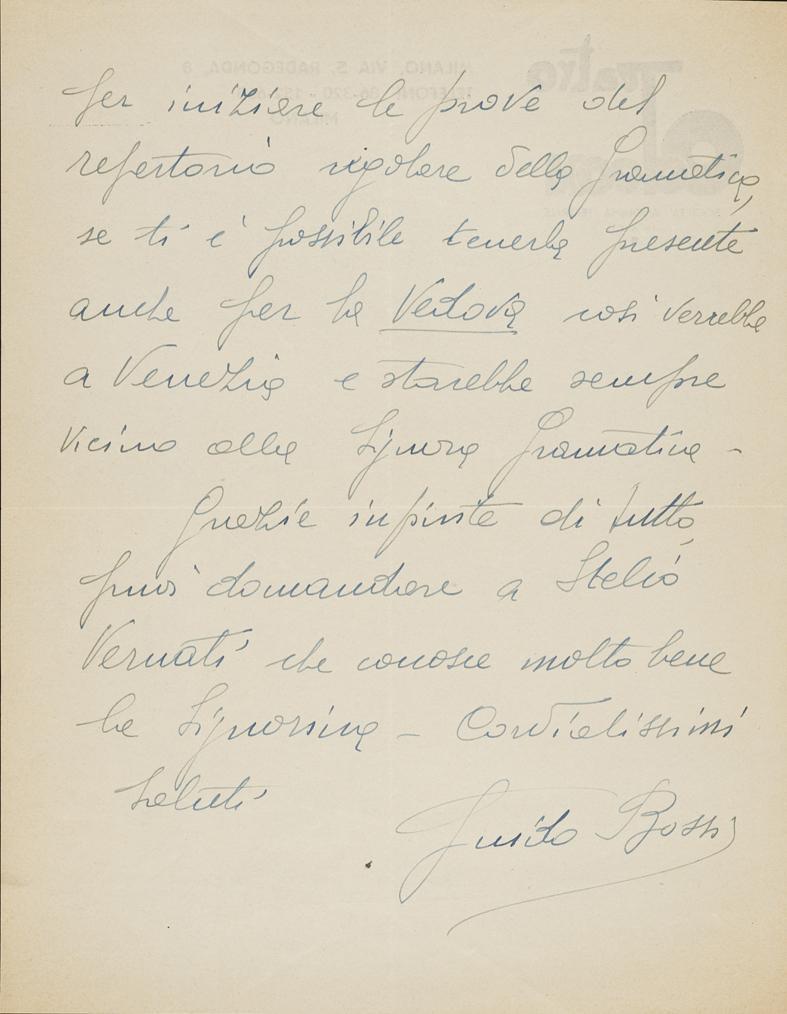 per iniziare le prove del
repertorio regolare della Gramatica,
se ti è possibile tenerla presente
anche per la Vedova così verrebbe
a Venezia e starebbe sempre
vicino alla Signora Gramatica –
Grazie infinite di tutto,
puoi domandare a Stelio
che conosce molto bene
la Signorina – Cordialissimi
saluti
Guido Bossi
MILANO, VIA S. RADEGONDA, 8